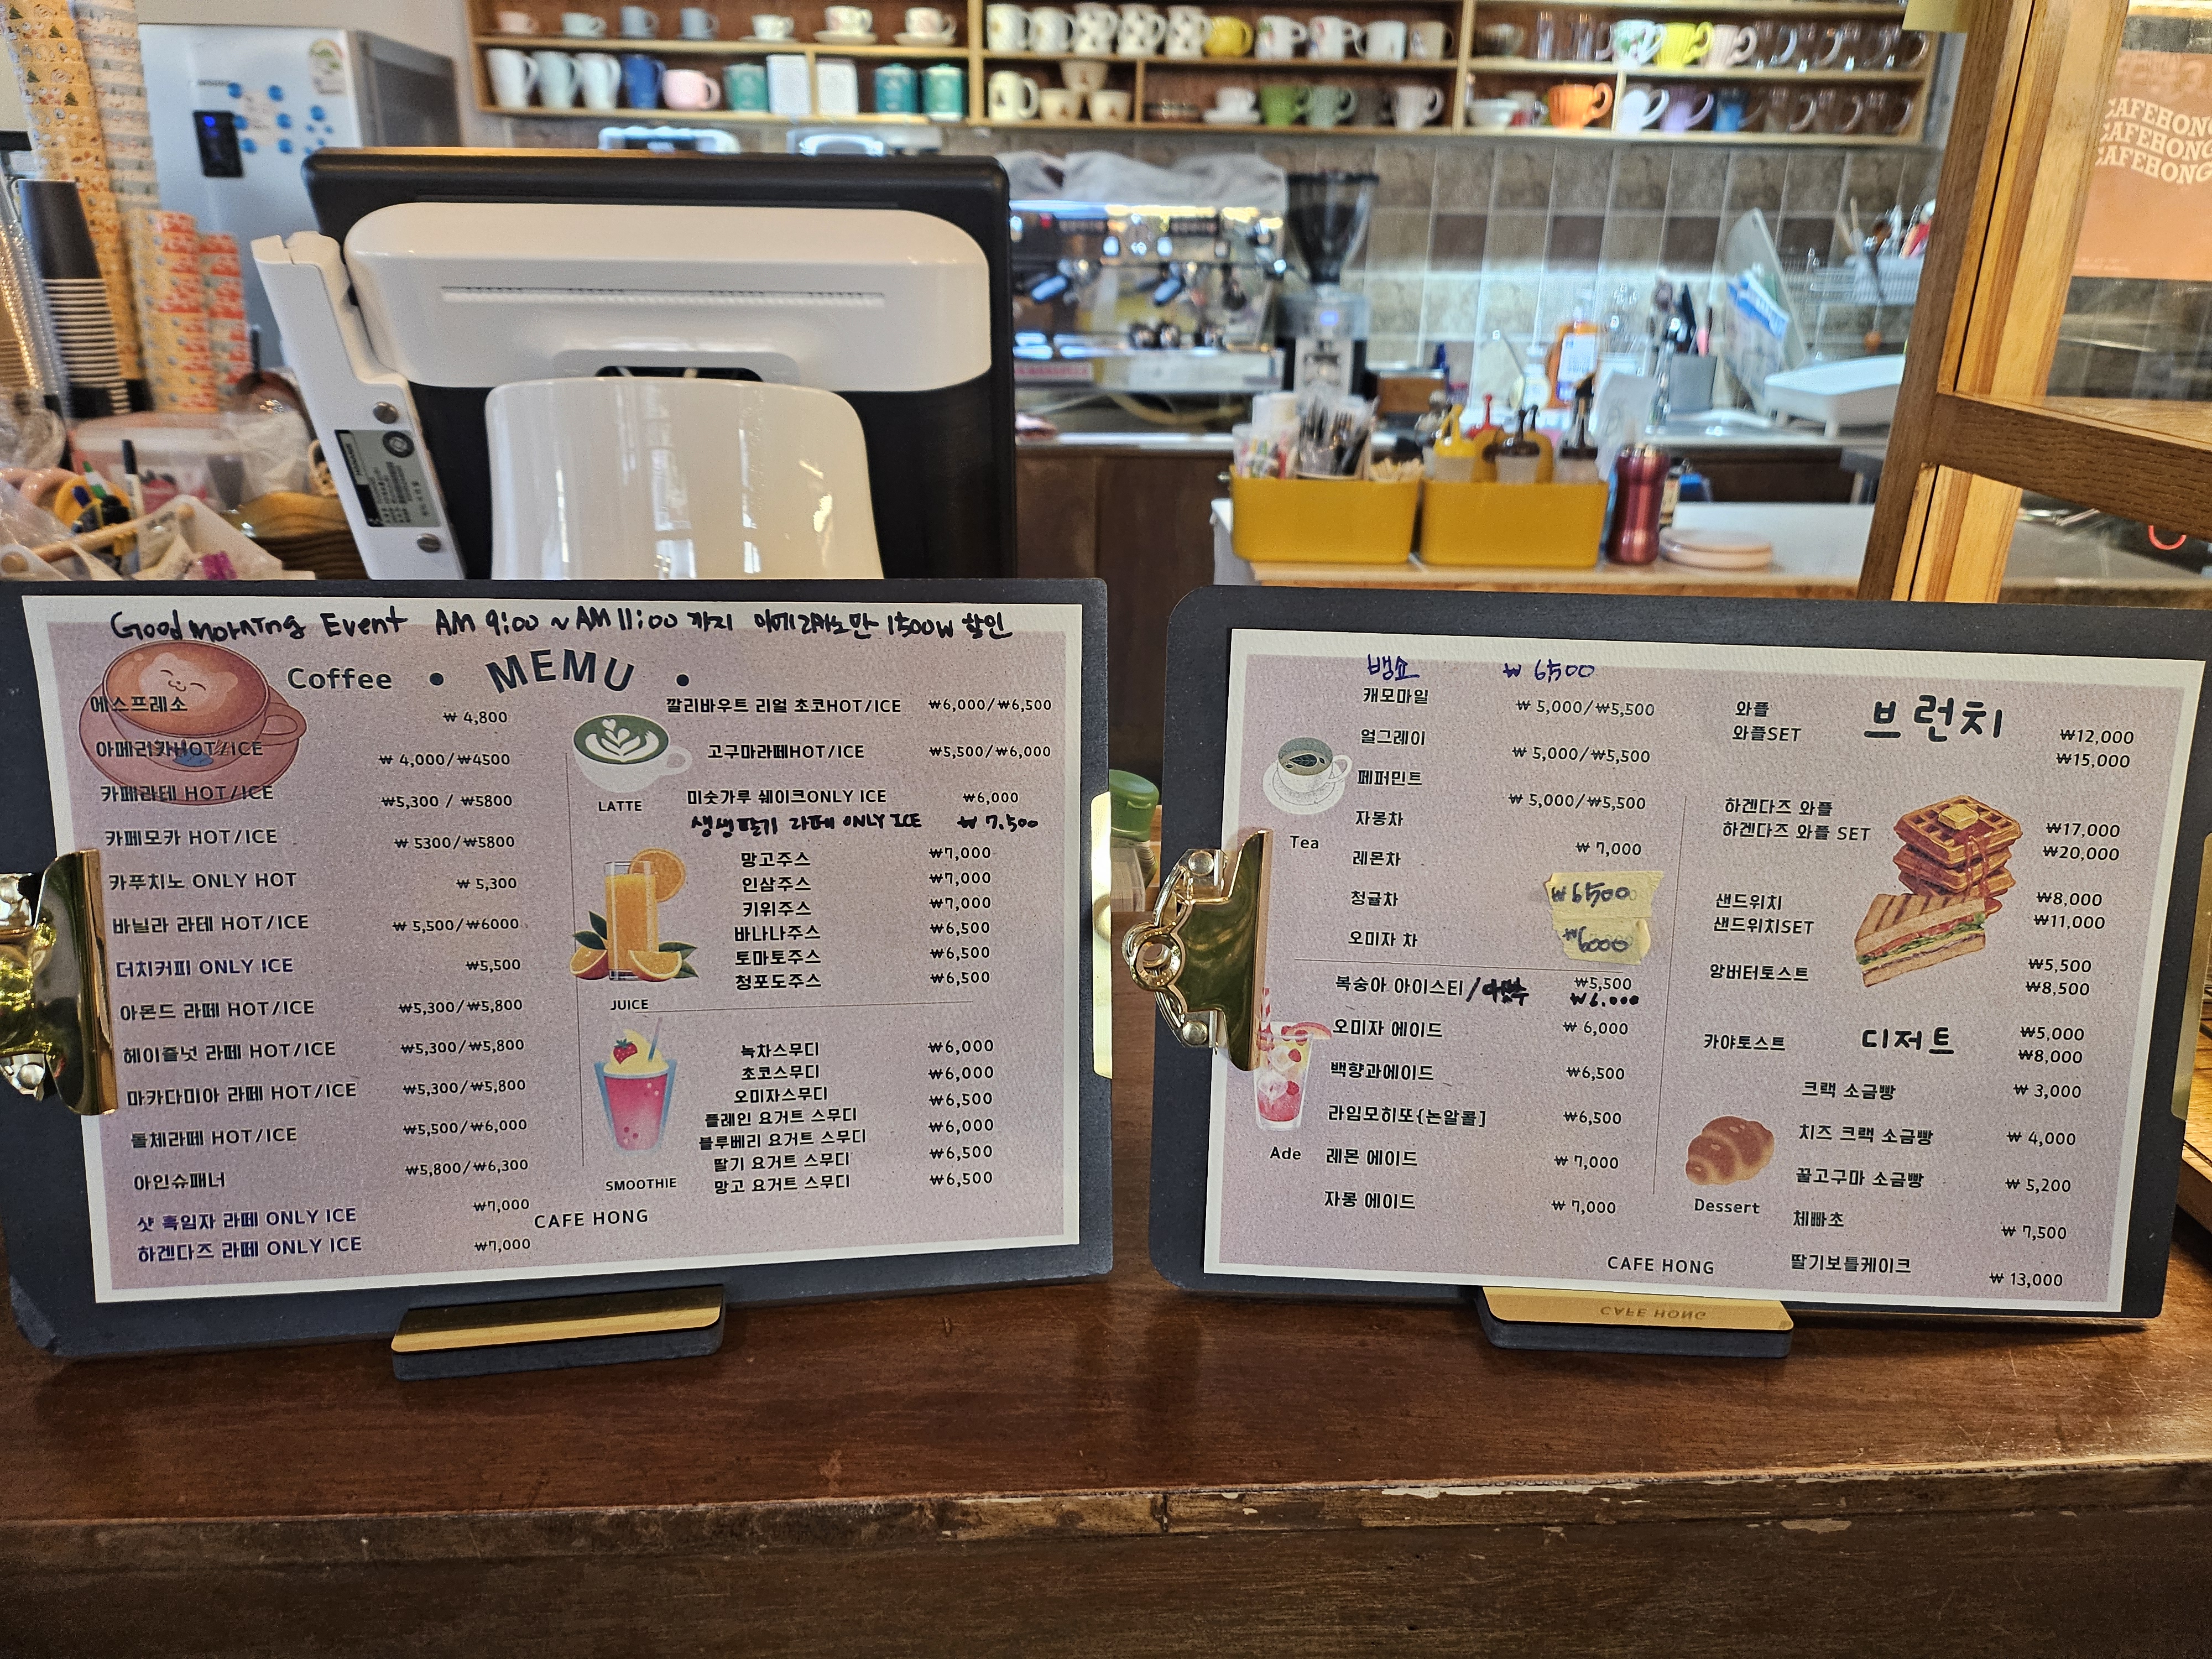 Good Morning Event AM 9:00 ~ AM 11:00 까지 아메리카노만 1500W 할인
Coffee • MEMU •
에스프레소 ₩ 4,800
아메리카HOT/ICE ₩ 4,000/₩4500
카페라테 HOT/ICE ₩5,300 / ₩5800
카페모카 HOT/ICE ₩ 5300/₩5800
카푸치노 ONLY HOT ₩ 5,300
바닐라 라테 HOT/ICE ₩ 5,500/₩6000
더치커피 ONLY ICE ₩5,500
아몬드 라떼 HOT/ICE ₩5,300/₩5,800
헤이즐넛 라떼 HOT/ICE ₩5,300/₩5,800
마카다미아 라떼 HOT/ICE ₩5,300/₩5,800
돌체라떼 HOT/ICE ₩5,500/₩6,000
아인슈패너 ₩5,800/₩6,300
샷 흑임자 라떼 ONLY ICE ₩7,000
하겐다즈 라떼 ONLY ICE ₩7,000
깔리바우트 리얼 초코HOT/ICE ₩6,000/₩6,500
고구마라떼HOT/ICE ₩5,500/₩6,000
LATTE
미숫가루 쉐이크ONLY ICE ₩6,000
생생딸기 라떼 ONLY ICE ₩ 7,500
망고주스 ₩7,000
인삼주스 ₩7,000
키위주스 ₩7,000
바나나주스 ₩6,500
토마토주스 ₩6,500
청포도주스 ₩6,500
JUICE
녹차스무디 ₩6,000
초코스무디 ₩6,000
오미자스무디 ₩6,500
플레인 요거트 스무디 ₩6,000
블루베리 요거트 스무디 ₩6,500
딸기 요거트 스무디 ₩6,500
망고 요거트 스무디
SMOOTHIE
CAFE HONG
뱅쇼 ₩ 6500
캐모마일 ₩ 5,000/₩5,500
얼그레이 ₩ 5,000/₩5,500
페퍼민트 ₩ 5,000/₩5,500
자몽차
Tea
레몬차 ₩ 7,000
청귤차 ₩6500
오미자 차 ₩6000
복숭아 아이스티/ ₩5,500
₩6.000
오미자 에이드 ₩ 6,000
백향과에이드 ₩6,500
라임모히또{논알콜] ₩6,500
Ade
레몬 에이드 ₩ 7,000
자몽 에이드 ₩ 7,000
브런치
와플 ₩12,000
와플SET ₩15,000
하겐다즈 와플 ₩17,000
하겐다즈 와플 SET ₩20,000
샌드위치 ₩8,000
샌드위치SET ₩11,000
앙버터토스트 ₩5,500
₩8,500
카야토스트 ₩5,000
₩8,000
디저트
크랙 소금빵 ₩ 3,000
치즈 크랙 소금빵 ₩ 4,000
꿀고구마 소금빵 ₩ 5,200
Dessert
체빠초 ₩ 7,500
딸기보틀케이크 ₩ 13,000
CAFE HONG
CAFE HONG
CAFEHONG
CAFEHONG
CAFEHONG